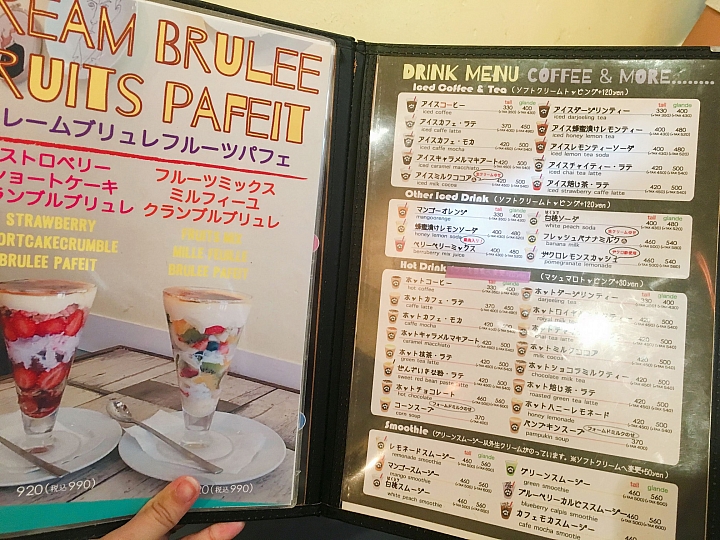 REAM BRULEE
RUITS PAFEIT
レームブリュレフルーツパフェ
ストロベリー
ショートケーキ
ランブルブリュレ
フルーツミックス
ミルフィーユ
クランブルブリュレ
STRAWBERRY
ORTCAKECRUMBLE
BRULEE PAFEIT
FRUITS MIX
MILLE FEUILLE
BRULEE PAFEIT
920(税込990)
20(税込990)
DRINK MENU COFFEE & MORE........
Iced Coffee & Tea (ソフトクリームトッピング+120yen)
tall glande
アイスコーヒー
iced coffee
330 400
アイスカフェ・ラテ
iced caffe latte
370 450
アイスカフェ・モカ
iced caffe mocha
420 500
アイスキャラメルマキアート
iced caramel macchiato
420 500
アイスミルクココア
iced milk cocoa
420 500
tall glande
アイスダージリンティー
iced darjeeling tea
330 400
アイス蜂蜜漬けレモンティー
iced honey lemon tea
400 480
アイスレモンティーソーダ
iced lemon tea soda
400 480
アイスチャイティー・ラテ
iced chai tea latte
420 500
アイス焙じ茶・ラテ
iced strawberry caffe latte
420 500
Other Iced Drink (ソフトクリームトッピング+120yen)
tall glande
マンゴーオレンジ
mangoorenge
330 400
蜂蜜漬けレモンソーダ
honey lemon soda
400 480
ベリーベリーミックス
berruberry mix juice
400 480
tall glande
白桃ソーダ
white peach soda
400 480
フレッシュバナナミルク
banana milk
460 540
ザクロレモンスカッシュ
pomegranate lemonade
460 540
Hot Drink
(マシュマロトッピング+80yen)
tall glande
ホットコーヒー
hot coffee
330 400
ホットカフェ・ラテ
caffe latte
370 450
ホットカフェ・モカ
caffe mocha
420 500
ホットキャラメルマキアート
caramel macchiato
420 500
ホット抹茶・ラテ
green tea latte
420 500
ぜんざいきな粉・ラテ
sweet red bean paste latte
420 500
ホットチョコレート
hot chocolate
460
フォームドミルクのせ
コーンスープ
corn soup
370
tall glande
ホットダージリンティー
darjeeling tea
330 400
ホットロイヤ
roival milk
ホットチ
chai tea
ホットミルクココア
milk cocoa
420 500
ホットショコラミルクティー
chocolate milk tea
420 500
ホット焙じ茶・ラテ
roasted green tea latte
420 500
ホットハニーレモネード
honey lemonade
400 480
フォームドミルクのせ
パンプキンスープ
pampukin soup
370
Smoothie (グリーンスムージー以外生クリームがのっています。※ソフトクリームへ変更+50yen)
tall glande
レモネードスムージー
remonade smoothie
460 560
マンゴースムージー
mango smoothie
460 560
白桃スムージー
white peach smoothie
460 560
tall glande
グリーンスムージー
green smoothie
460 560
ブルーベリーカルピススムージー
blueberry calpis smoothie
460 560
カフェモカスムージー
cafe mocha smoothie
460 560